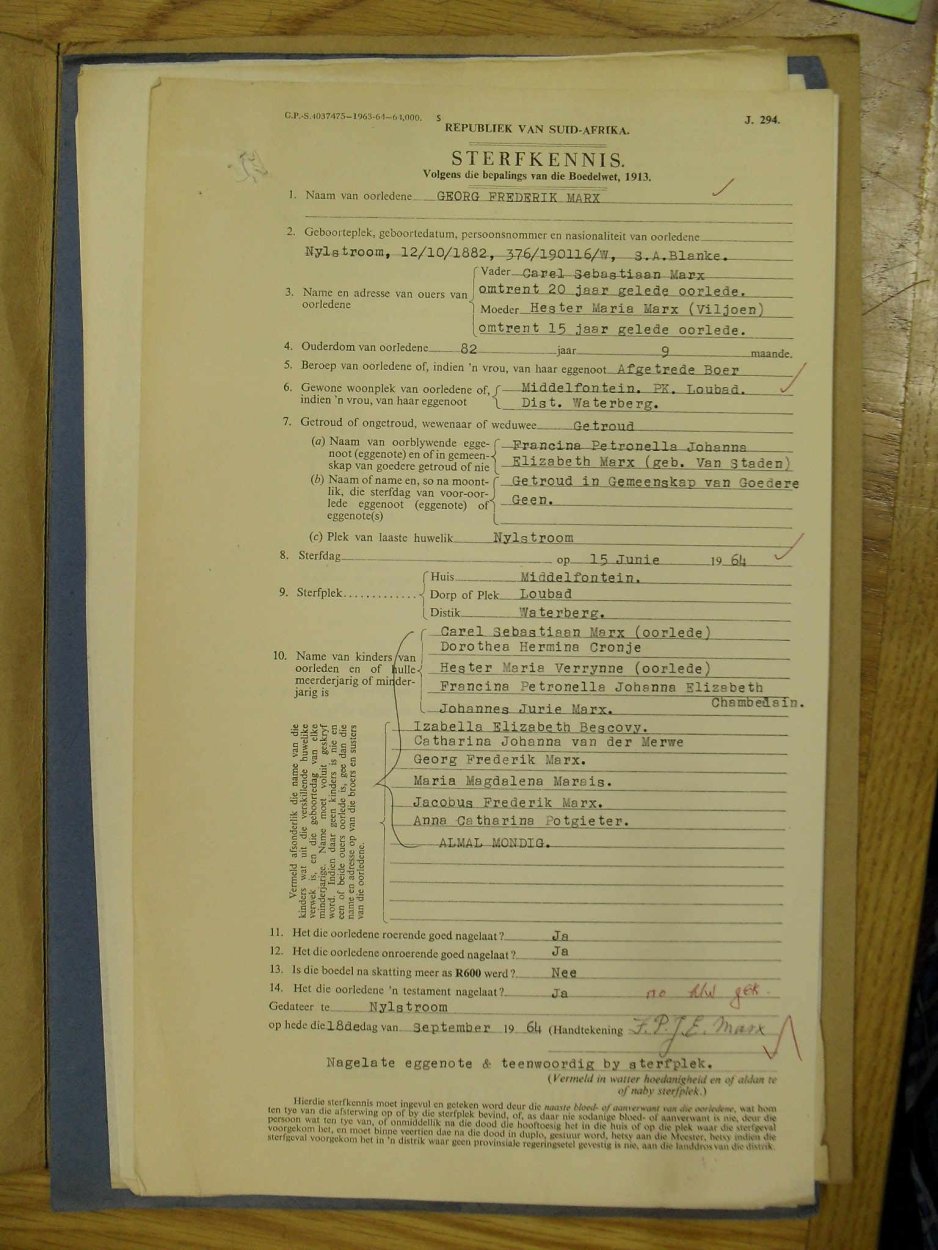 G.P.-S.4037475—1963-64—64,000. S
J. 294.
REPUBLIEK VAN SUID-AFRIKA.
STERFKENNIS.
Volgens die bepalings van die Boedelwet, 1913.
1. Naam van oorledene GEORG FREDERIK MARX
2. Geboorteplek, geboortedatum, persoonsnommer en nasionaliteit van oorledene
Nylstroom, 12/10/1882, 376/190116/W, S.A.Blanke.
3. Name en adresse van ouers van oorledene
Vader Carel Sebastiaan Marx
omtrent 20 jaar gelede oorlede.
Moeder Hester Maria Marx (Viljoen)
omtrent 15 jaar gelede oorlede.
4. Ouderdom van oorledene 82 jaar 9 maande.
5. Beroep van oorledene of, indien 'n vrou, van haar eggenoot Afgetrede Boer
6. Gewone woonplek van oorledene of, Middelfontein. PK. Loubad.
indien 'n vrou, van haar eggenoot Dist. Waterberg.
7. Getroud of ongetroud, wewenaar of weduwee Getroud
(a) Naam van oorblywende egge- Francina Petronella Johanna
noot (eggenote) en of in gemeen- Elizabeth Marx (geb. Van Staden)
skap van goedere getroud of nie
(b) Naam of name en, so na moont- Getroud in Gemeenskap van Goedere
lik, die sterfdag van voor-oor- Geen.
lede eggenoot (eggenote) of
eggenote(s)
(c) Plek van laaste huwelik Nylstroom
8. Sterfdag op 15 Junie 19 64
9. Sterfplek
Huis Middelfontein.
Dorp of Plek Loubad
Distik Waterberg.
10. Name van kinders van
oorleden en of hulle
meerderjarig of minder-
jarig is
Carel Sebastiaan Marx (oorlede)
Dorothea Hermina Cronje
Hester Maria Verrynne (oorlede)
Francina Petronella Johanna Elizabeth
Chambelain.
Johannes Jurie Marx.
Vermeld afsonderlik die name van die
kinders wat uit die verskillende huwelike
verwek is, en die geboortedag van elke
minderjarige. Name moet voluit geskryf
word. Indien daar geen kinders is nie en
een of beide ouers oorlede is, gee dan die
name en adresse op van die broers en susters
van die oorledene.
Izabella Elizabeth Bescovy.
Catharina Johanna van der Merwe
Georg Frederik Marx.
Maria Magdalena Marais.
Jacobus Frederik Marx.
Anna Catharina Potgieter.
ALMAL MONDIG.
11. Het die oorledene roerende goed nagelaat? Ja
12. Het die oorledene onroerende goed nagelaat? Ja
13. Is die boedel na skatting meer as R600 werd? Nee
14. Het die oorledene 'n testament nagelaat? Ja no
Gedateer te Nylstroom
op hede die 18de dag van September 19 64 (Handtekening F.P.J.E. Marx
Nagelate eggenote & teenwoordig by sterfplek.
(Vermeld in watter hoedanigheid en of aldan te
of naby sterfplek.)
Hierdie sterfkennis moet ingevul en geteken word deur die naaste bloed- of aanverwant van die oorledene, wat hom
ten tye van die afsterwing op of by die sterfplek bevind, of, as daar nie sodanige bloed- of aanverwant is nie, deur die
persoon wat ten tye van, of onmiddellik na die dood die hooftoesig het in die huis of op die plek waar die sterfgeval
voorgekom het, en moet binne veertien dae na die dood in duplo, gestuur word, hetsy aan die Meester, hetsy indien die
sterfgeval voorgekom het in 'n distrik waar geen provinsiale regeringsetel gevestig is nie, aan die landdros van die distrik.